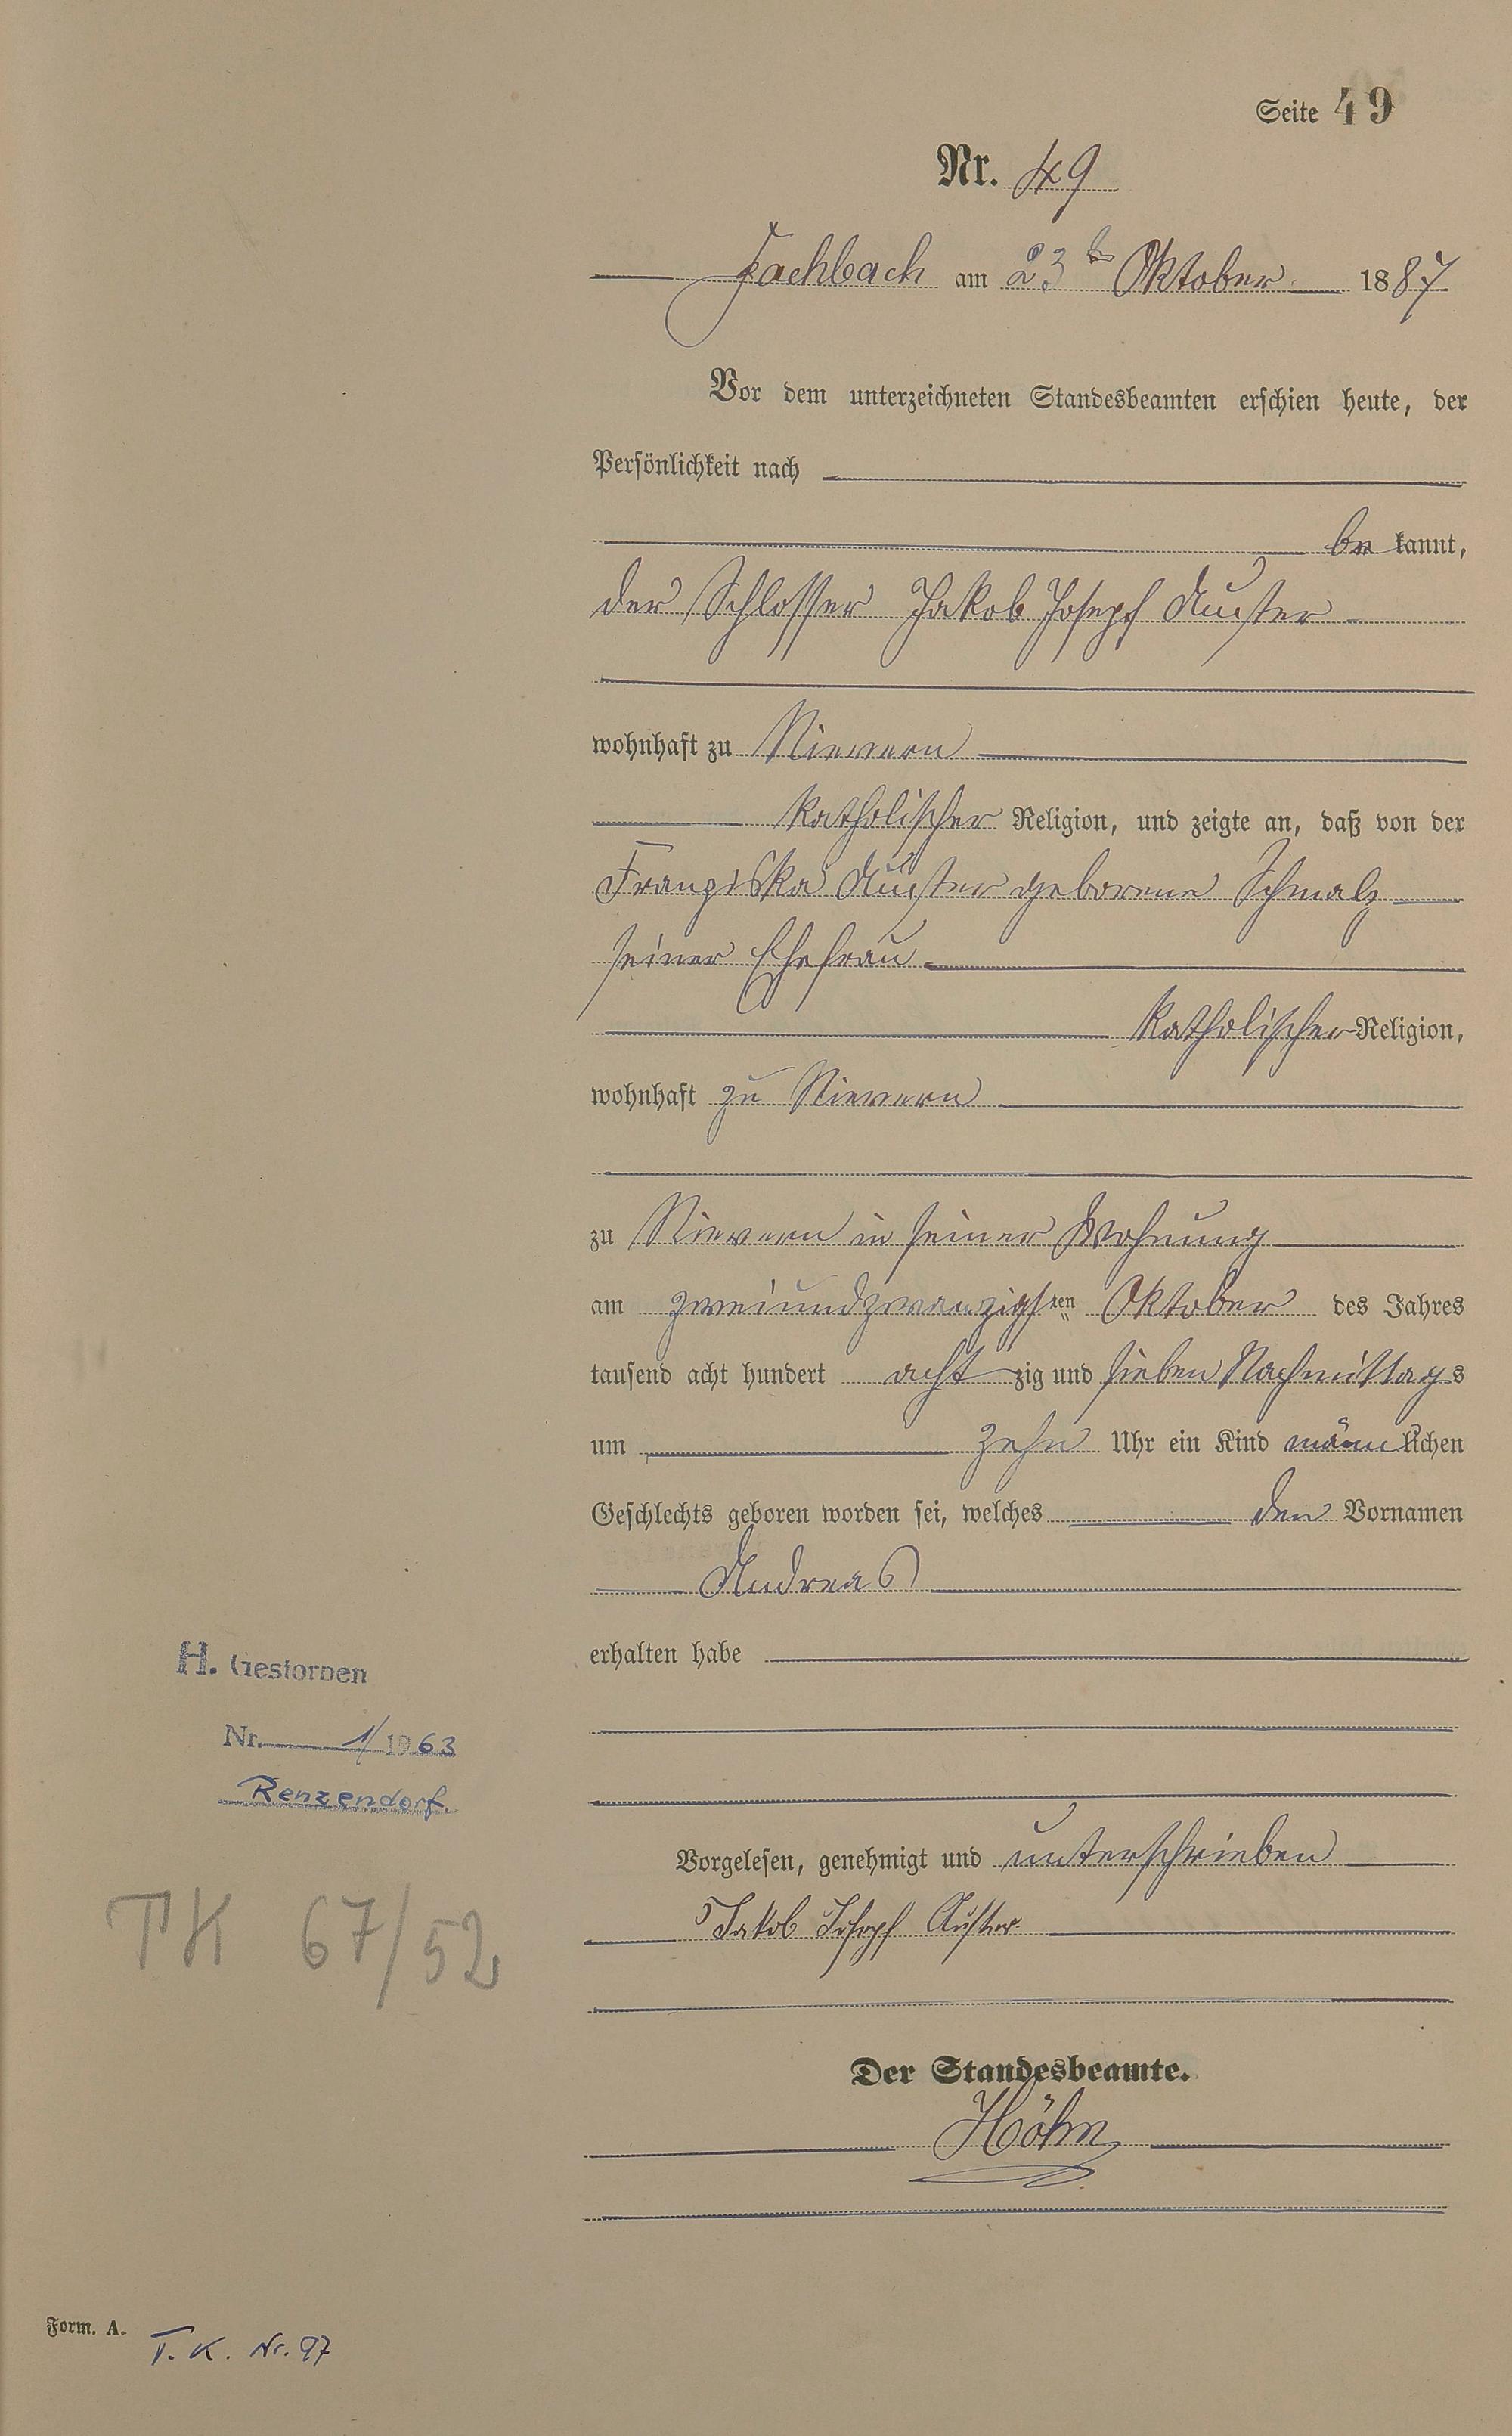 Seite 49
Nr. 49
Fachbach am 23ten Oktober 1887
Vor dem unterzeichneten Standesbeamten erschien heute, der
Persönlichkeit nach
be kannt,
der Schlosser Jakob Joseph Auster
wohnhaft zu Nievern
katholischer Religion, und zeigte an, daß von der
Franziska Auster geborene Schmalz
seiner Ehefrau
katholischer Religion,
wohnhaft zu Nievern
zu Nievern in seiner Wohnung
am zweiundzwanzigsten Oktober des Jahres
tausend acht hundert acht zig und sieben Nachmittags
um zehn Uhr ein Kind männlichen
Geschlechts geboren worden sei, welches den Vornamen
Andreas
erhalten habe
H. Gestorben
Nr. 1/1963
Renzendorf.
Vorgelesen, genehmigt und unterschrieben
Jakob Joseph Auster
TK 67/52
Der Standesbeamte.
Höhn
Form. A.
T. K. Nr. 97